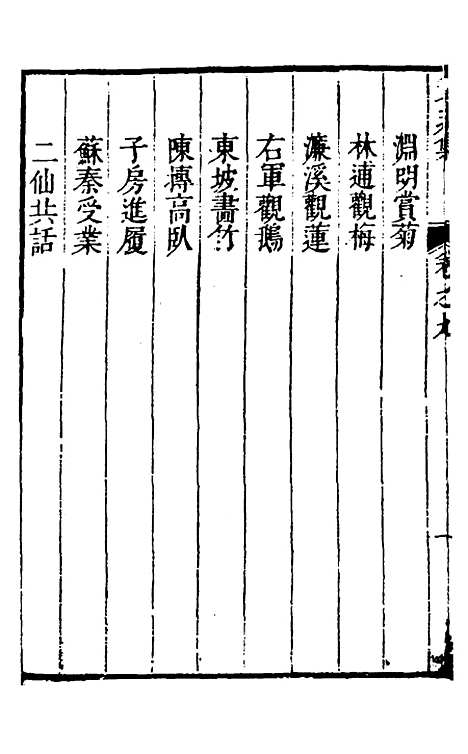 淵明賞菊
林逋觀梅
濂溪觀蓮
右軍觀鵝
東坡畵竹
陳摶高臥
子房進履
蘇秦受業
二仙共話
卷之九
一